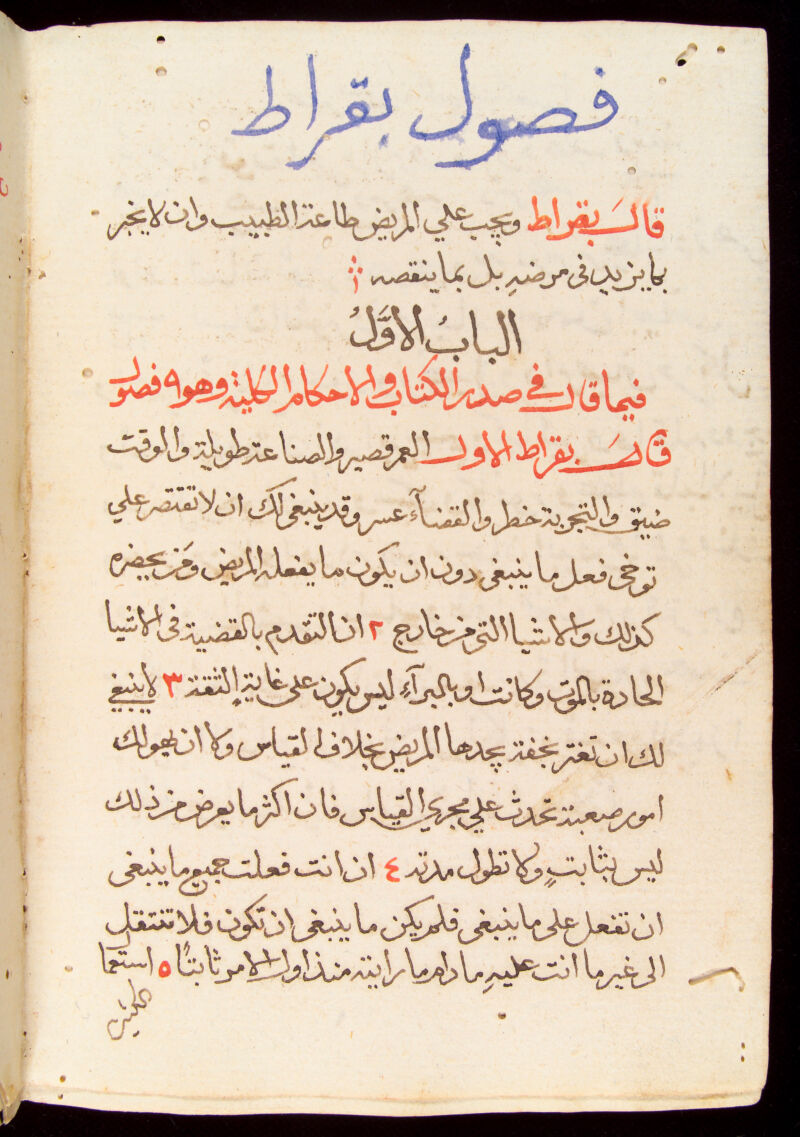 فصول بقراط
قال بقراط ويجب علي المريض طاعة الطبيب وان لا يخبر
بما يزيد في مرضهِ بل بما ينقصه
البابُ الاوَّلُ
فيما قال في صدر الكتاب والاحكام الكلية وهو ٩ فصول
قال بقراط الاول العمر قصير والصناعة طويلة والوقت
ضيق والتجربة خطر والقضآء عسر وقد ينبغي لك ان لا تقتصر علي
توخي فعل ما ينبغي دون ان يكون ما يفعله المريض ومَن يحضره
كذلك والاشيا التي من خارج ٢ ان التقدم بالقضية في الاشيا
الحادة بالموت وكانت او بالبرآءِ ليس يكون على غايةِ الثقة ٣ لا ينبغي
لك ان تغتر بخفة يجدها المريض بخلاف القياس ولا ان يهولك
امور صعبة تحدث علي مجري القياس فان اكثر ما يعرض من ذلك
ليس بثابتٍ ولا تطول مدته ٤ ان انت فعلت جميع ما ينبغي
ان تفعل على ما ينبغي فلم يكن ما ينبغي ان تكون فلا تنتقل
الى غير ما انت عليهِ ما دام ما رايته منذ اول الامر ثابتًا ٥ استعما